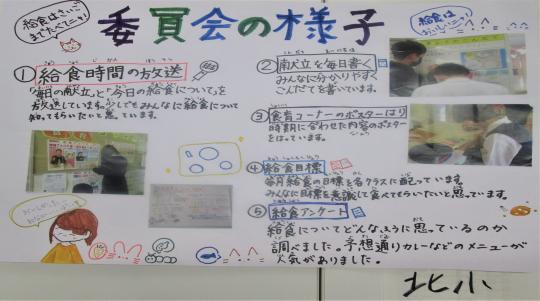 給食はさいごまでたべてニャ!
委員会の様子
給食はおいしいニャ!
① 給食時間の放送
毎日の献立と、今日の給食についてを
放送しています。少しでもみんなに給食について
知ってもらいたいと思っています。
② 献立を毎日書く
みんなに分かりやすく
こんだてを書いています。
③ 食育コーナーのポスターはり
時期に合わせた内容のポスター
をはっています。
④ 給食目標
毎月給食の目標を各クラスに配っています。
みんなに目標を意識して食べてもらいたいと思っています。
⑤ 給食アンケート
給食についてどんなふうに思っているのか
調べました。予想通りカレーなどのメニューが
人気がありました。
北小